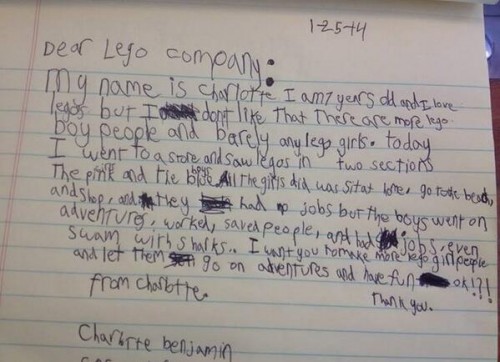 1-25-14
Dear Lego company:
My name is Charlotte I am 7 years old and I love
legos but I don't like that there are more lego
boy people and barely any lego girls. today
I went to a store and saw legos in two sections
The pink and the blue boys All the girls did was sit at home, go to the beach,
and shop, and they had no jobs but the boys went on
adventures, worked, saved people, and had jobs, even
swam with sharks.. I want you to make more lego girl people
and let them go on adventures and have fun ok!?!
from Charlotte.
Thank you.
Charlotte benjamin